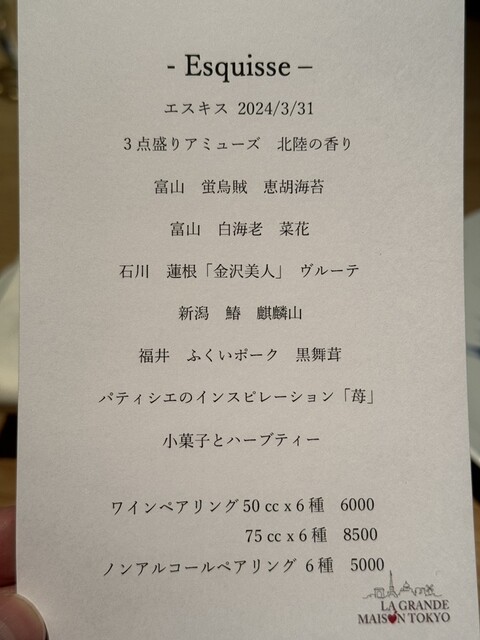 - Esquisse –
エスキス 2024/3/31
3点盛りアミューズ　北陸の香り
富山　蛍烏賊　恵胡海苔
富山　白海老　菜花
石川　蓮根「金沢美人」　ヴルーテ
新潟　鰆　麒麟山
福井　ふくいポーク　黒舞茸
パティシエのインスピレーション「苺」
小菓子とハーブティー
ワインペアリング 50 cc x 6 種　6000
75 cc x 6 種　8500
ノンアルコールペアリング 6 種　5000
LA GRANDE
MAISON TOKYO